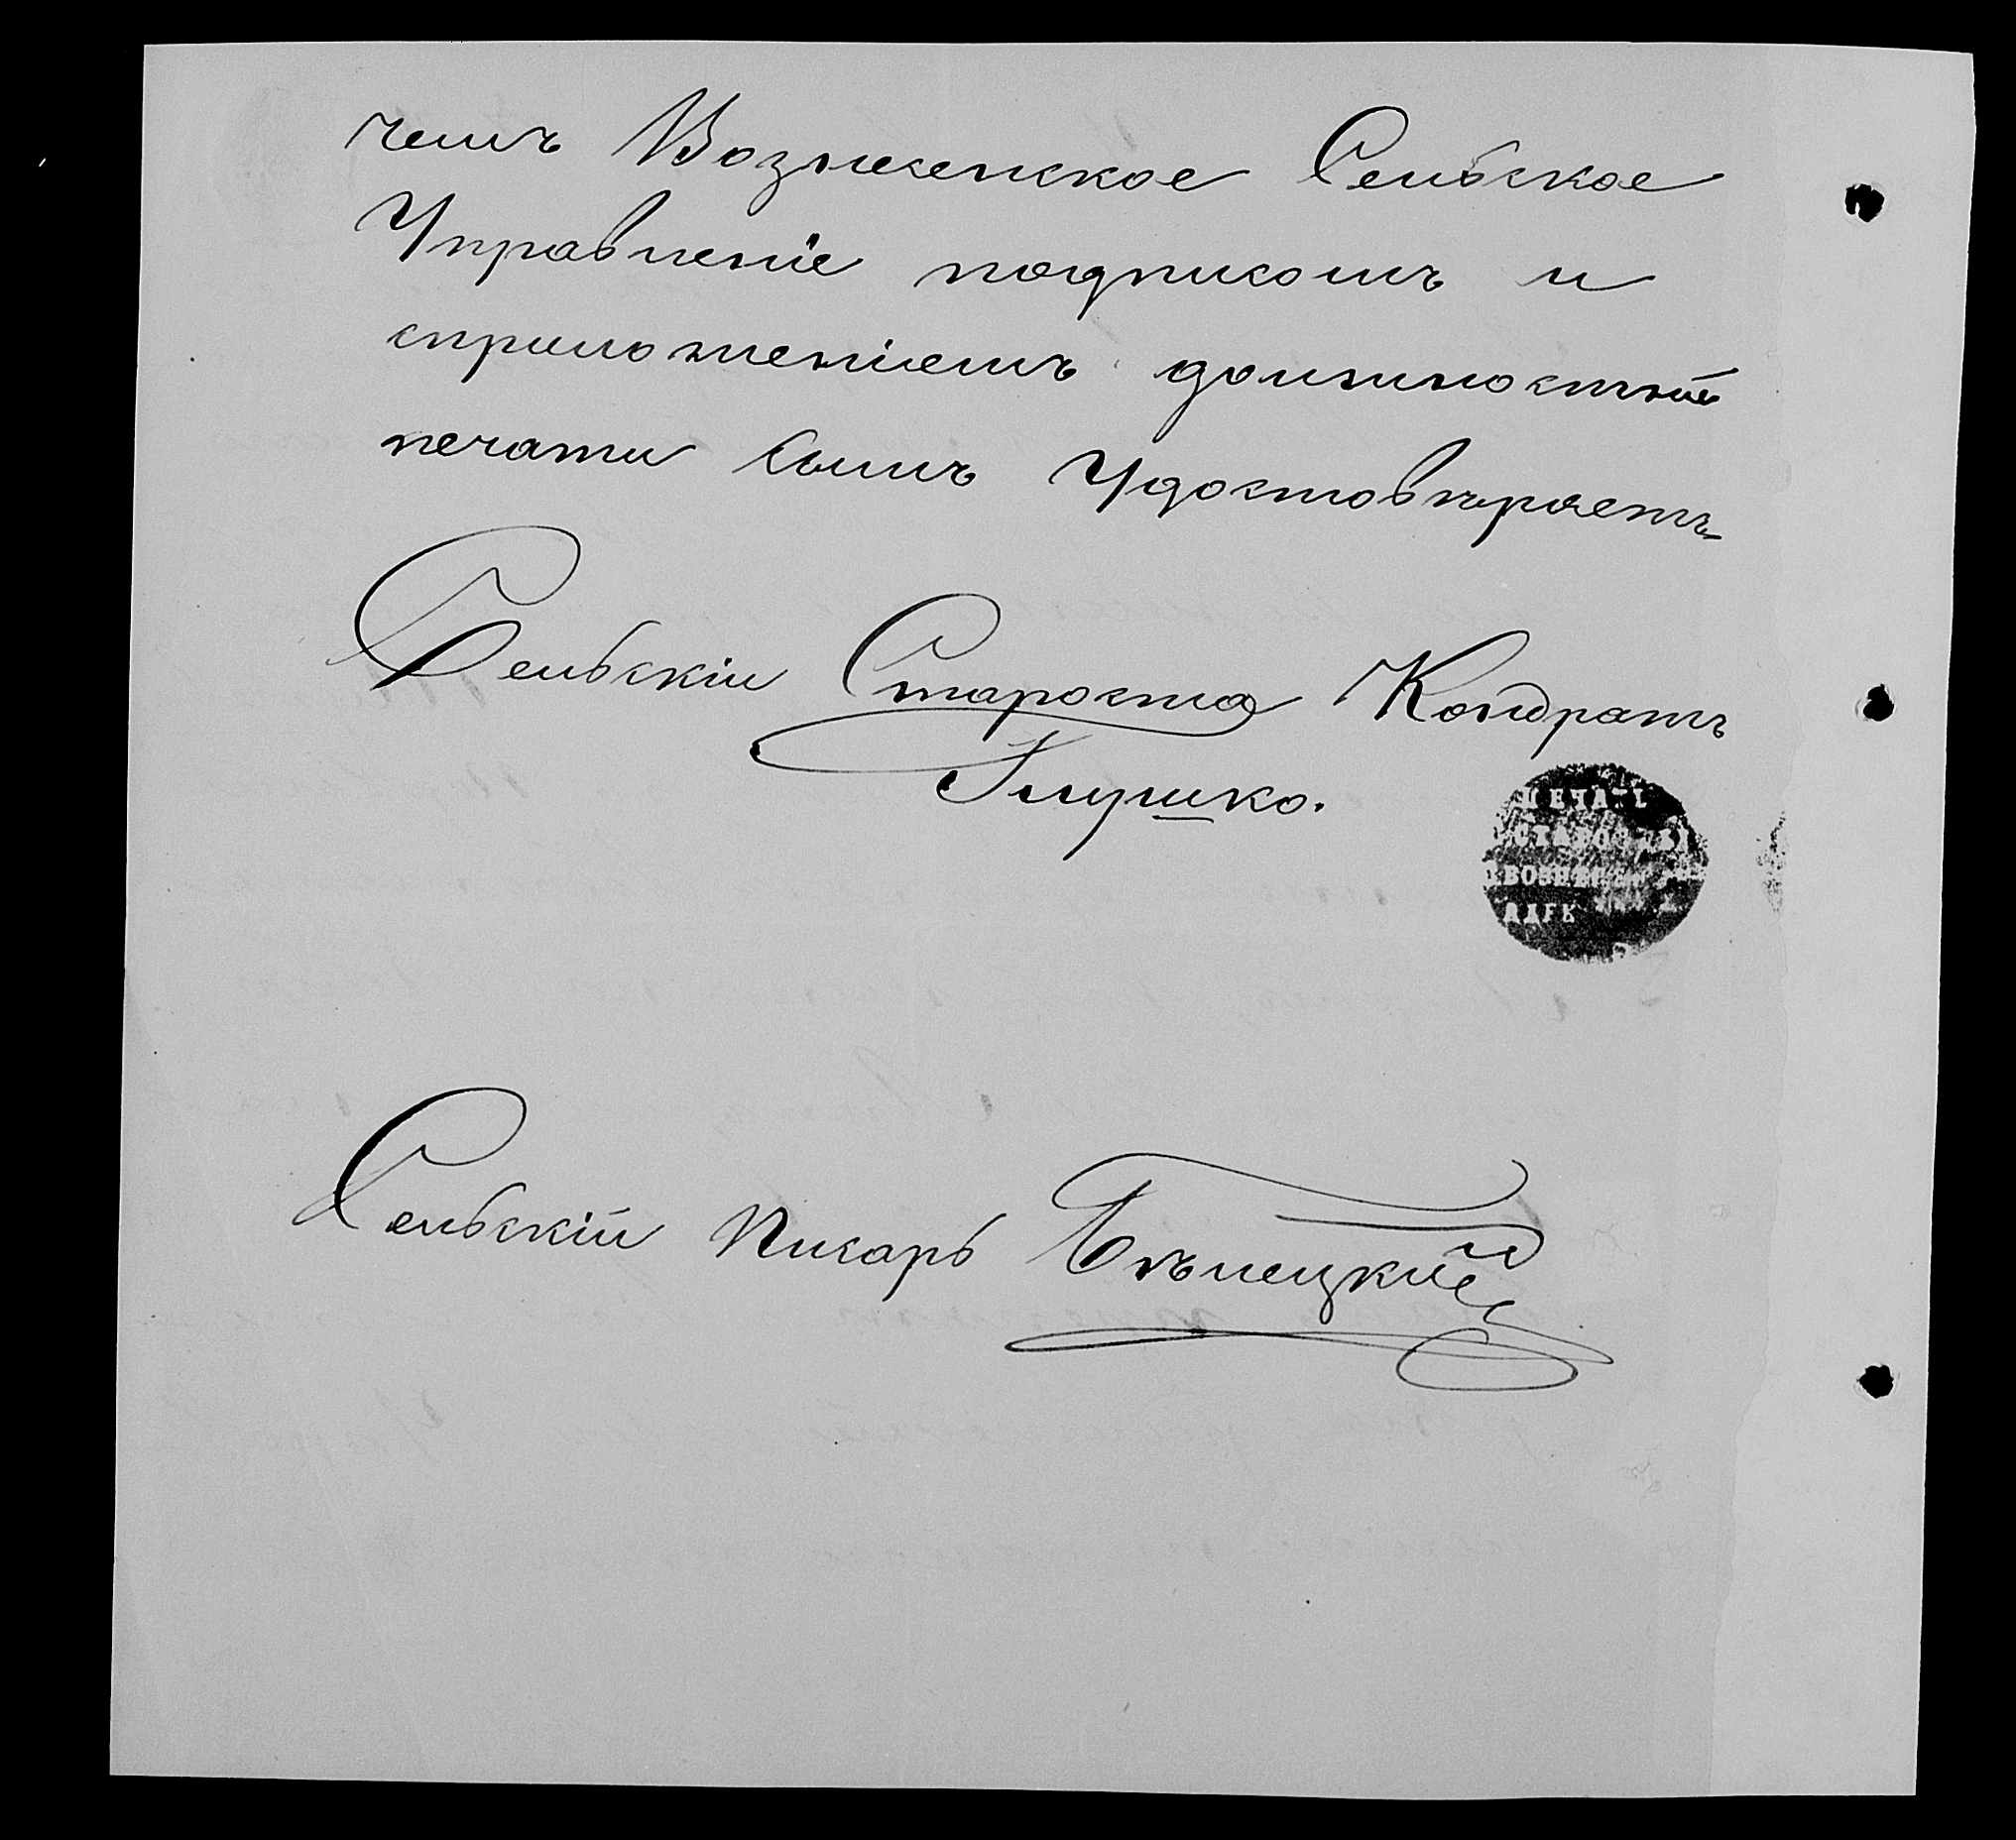 чемъ Вознесенское Сельское
Управленіе подписомъ и
сприложеніемъ должностной
печати симъ Удостовѣряетъ
Сельскій Староста Кондратъ
Глушко.
ПЕЧАТЬ
СТАРОСТЫ
ВОЗНЕСЕН
Сельскій Писарь Бѣлецкій